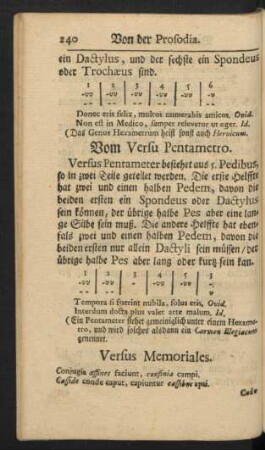 240 Von der Prosodia.
ein Dactylus, und der sechste ein Spondeus
oder Trochæus sind.
1 2 3 4 5 6
-vv -vv -vv -vv -vv -v
-- -- -- -- --
Donec eris felix, multos numerabis amicos. Ovid.
Non est in Medico, semper relevetur ut æger. Id.
(Das Genus Hexametrum heist sonst auch Heroicum.
Vom Versu Pentametro.
Versus Pentameter bestehet aus 5. Pedibus,
so in zwei Teile geteilet werden. Die erste Helffte
hat zwei und einen halben Pedem, davon die
beiden ersten ein Spondeus oder Dactylus
sein können, der übrige halbe Pes aber eine lan-
ge Silbe sein muß. Die andere Helffte hat eben-
fals zwei und einen halben Pedem, davon die
beiden ersten nur allein Dactyli sein müssen/ der
übrige halbe Pes aber lang oder kurtz sein kan.
Tempora si fuerint nubila, solus eris, Ovid.
Interdum docta plus valet arte malum. Id.
(Ein Pentameter stehet gemeiniglich unter einem Hexame-
tro, und wird solches alsdann ein Carmen Elegiacum
genennet.
Versus Memoriales.
Conjugis affines faciunt, confinia campi.
Casside conde caput, capiuntur cassibus apri.